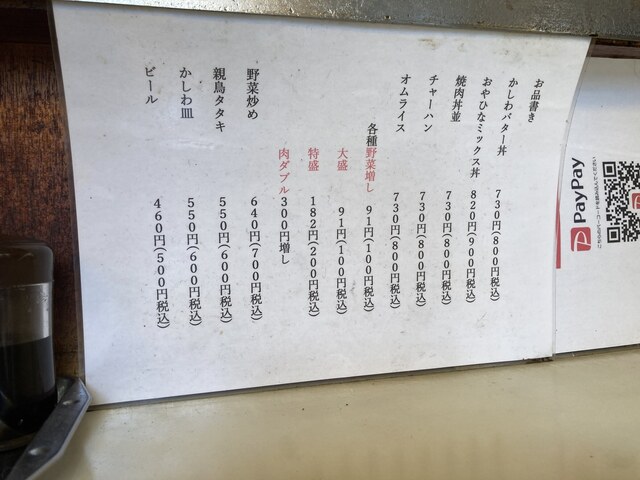 お品書き
かしわバター丼 730円(800円税込)
おやひなミックス丼 820円(900円税込)
焼肉丼並 730円(800円税込)
チャーハン 730円(800円税込)
オムライス 730円(800円税込)
各種野菜増し 91円(100円税込)
大盛 91円(100円税込)
特盛 182円(200円税込)
肉ダブル 300円増し
野菜炒め 640円(700円税込)
親鳥タタキ 550円(600円税込)
かしわ皿 550円(600円税込)
ビール 460円(500円税込)
PayPay